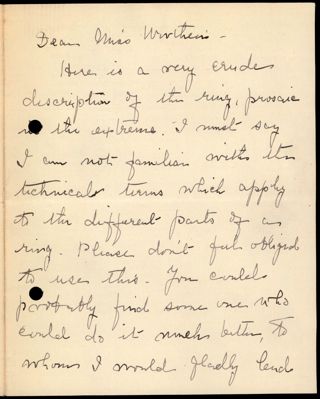 Dear Miss Wortheim -
Here is a very crude
description of the ring, prosaic
in the extreme. I must say
I am not familiar with the
technical terms which apply
to the different parts of a
ring. Please don't feel obliged
to use this. You could
probably find some one who
could do it much better, to
whom I would gladly lend